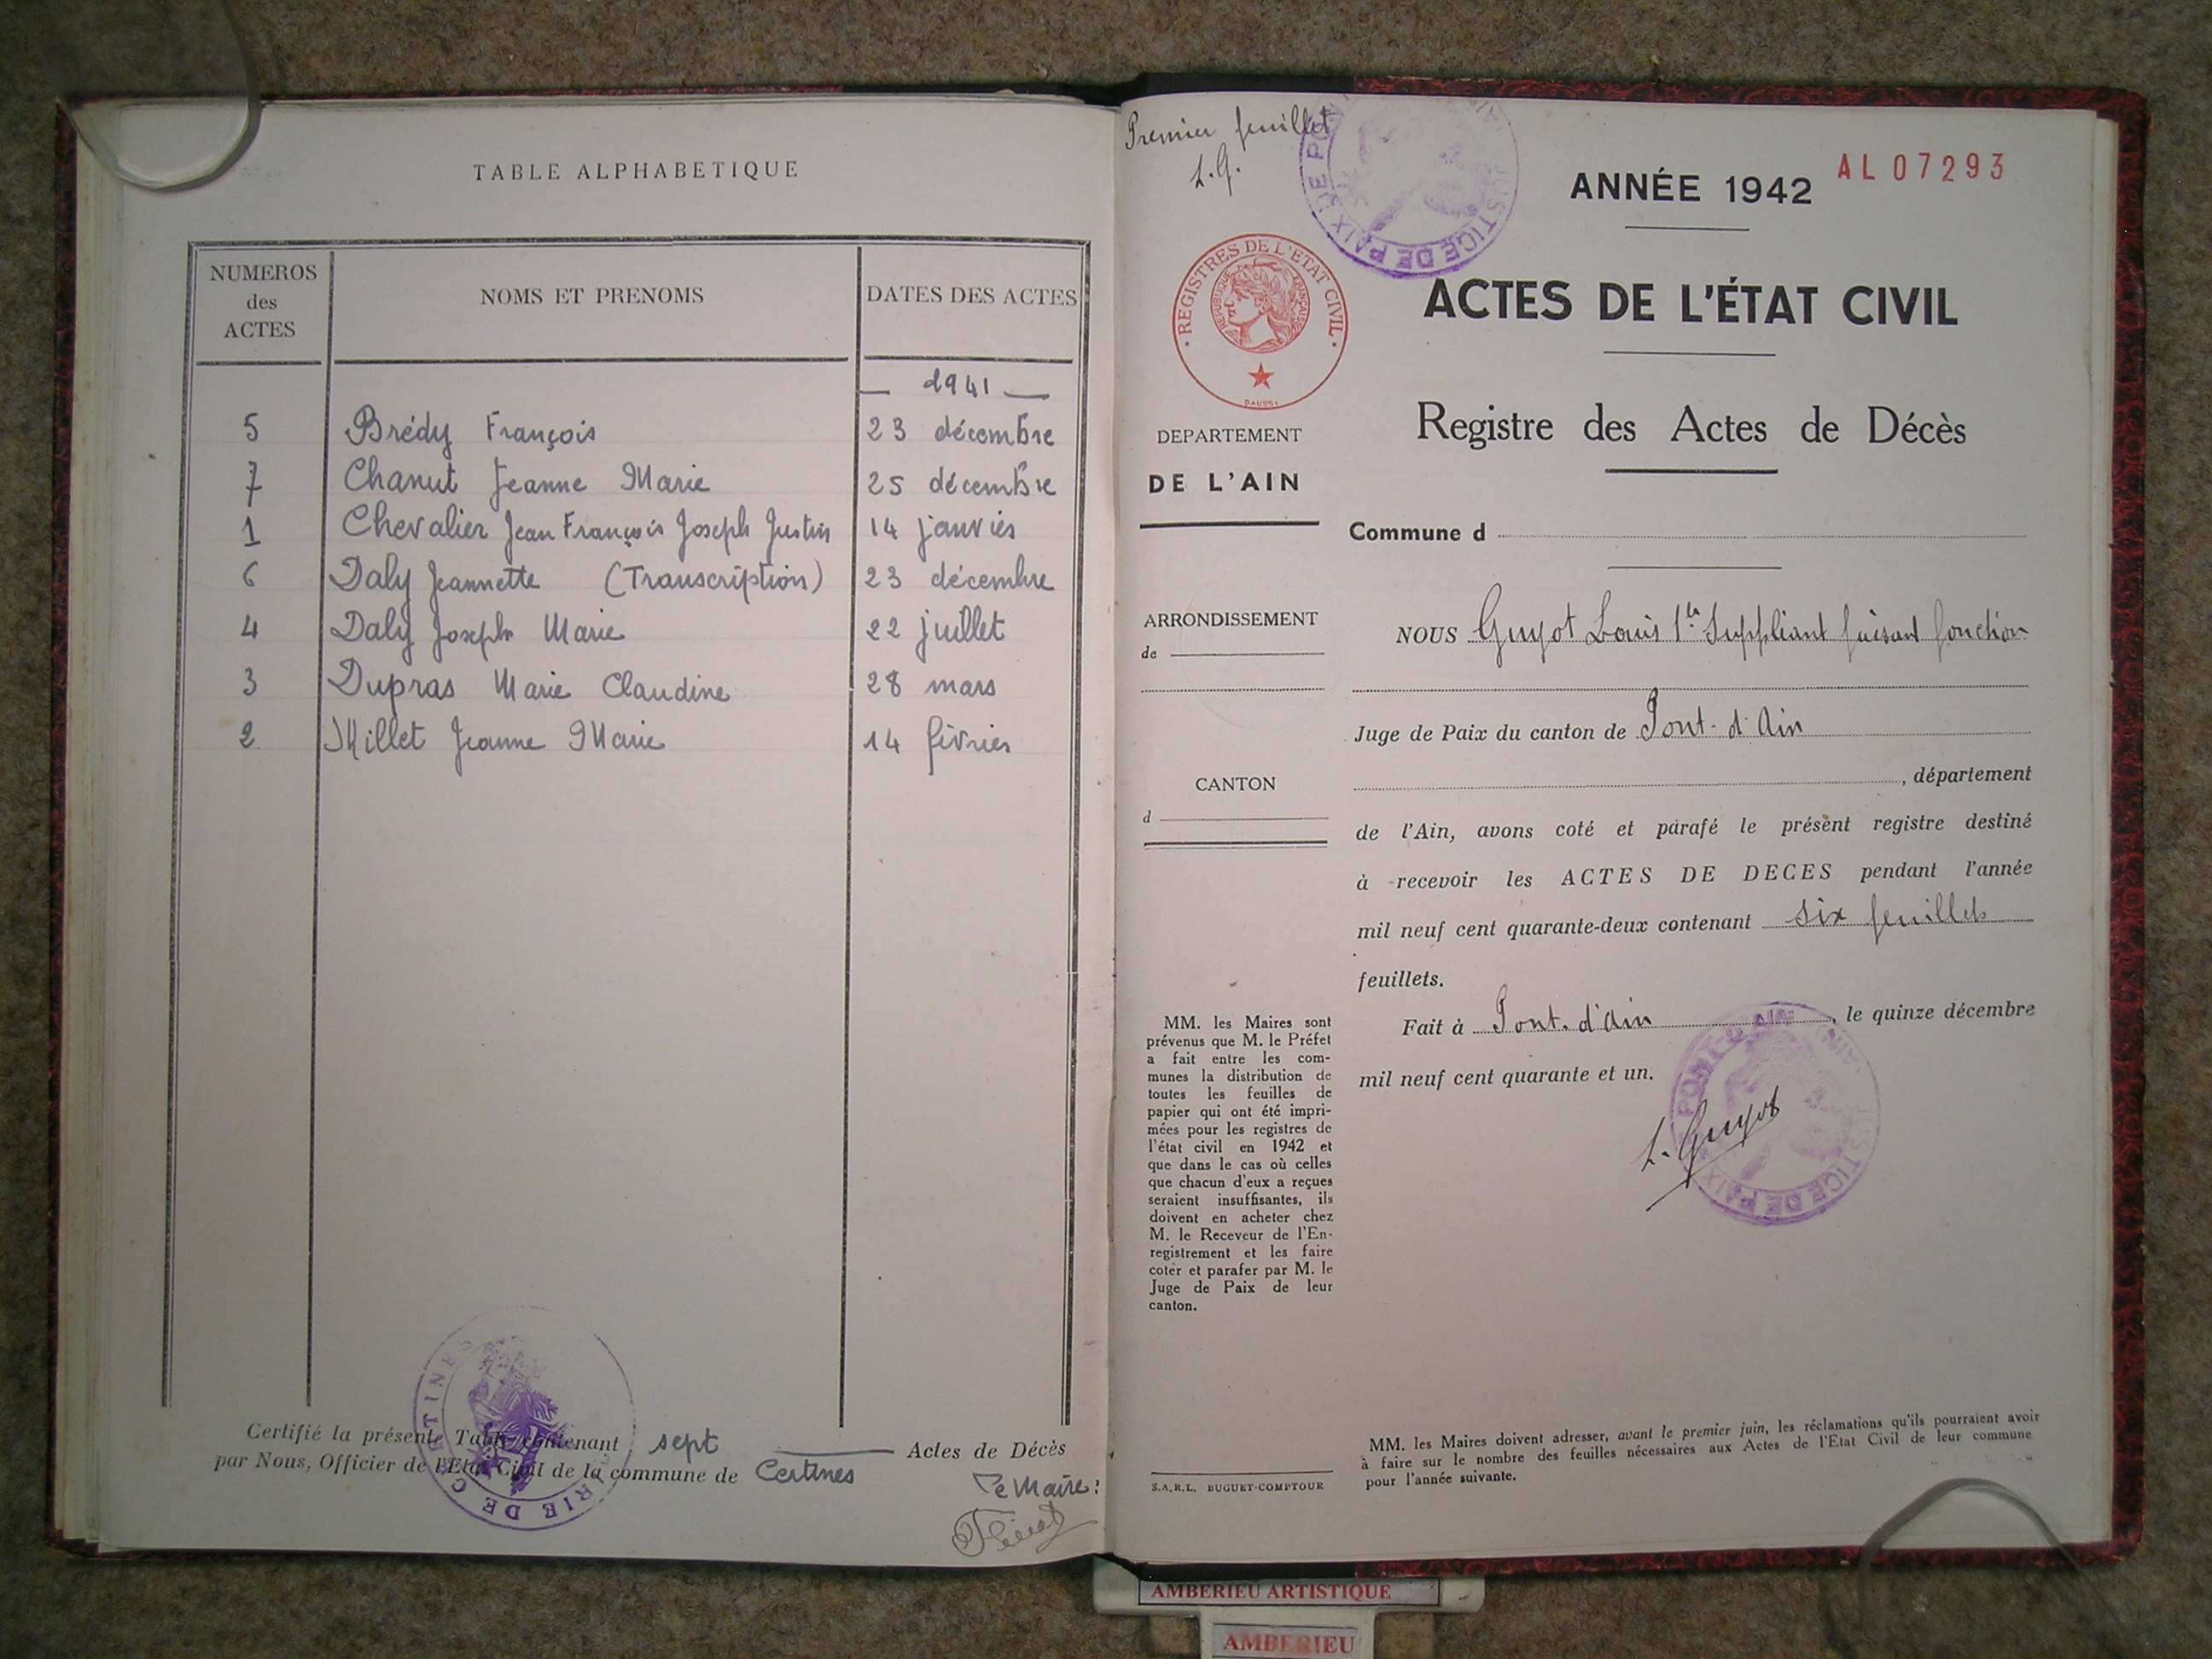 TABLE ALPHABETIQUE
NUMEROS des ACTES NOMS ET PRENOMS DATES DES ACTES
1941
5 Brédy François 23 décembre
7 Chanut Jeanne Marie 25 décembre
1 Chevalier Jean François Joseph Justin 14 janvier
6 Daly Jeannette (Transcription) 23 décembre
4 Daly Joseph Marie 22 juillet
3 Dupras Marie Claudine 28 mars
2 Millet Jeanne Marie 14 février
Certifié la présente Table contenant sept Actes de Décès
par Nous, Officier de l'Etat Civil de la commune de Certines
Le Maire:
MAIRIE DE CERTINES
Premier feuillet
L.G.
JUSTICE DE PAIX DE PONT-D'AIN
ANNÉE 1942
AL07293
REGISTRES DE L'ETAT CIVIL
REPUBLIQUE FRANÇAISE
ACTES DE L'ÉTAT CIVIL
Registre des Actes de Décès
DEPARTEMENT
DE L'AIN
Commune d
ARRONDISSEMENT
de
CANTON
d
NOUS Guyot Louis 1er Suppliant faisant fonction
Juge de Paix du canton de Pont-d'Ain
, département
de l'Ain, avons coté et parafé le présent registre destiné
à recevoir les ACTES DE DECES pendant l'année
mil neuf cent quarante-deux contenant six feuillets
feuillets.
Fait à Pont-d'ain, le quinze décembre
mil neuf cent quarante et un.
L. Guyot
JUSTICE DE PAIX PONT-D'AIN AIN
MM. les Maires sont
prévenus que M. le Préfet
a fait entre les com-
munes la distribution de
toutes les feuilles de
papier qui ont été impri-
mées pour les registres de
l'état civil en 1942 et
que dans le cas où celles
que chacun d'eux a reçues
seraient insuffisantes, ils
doivent en acheter chez
M. le Receveur de l'En-
registrement et les faire
coter et parafer par M. le
Juge de Paix de leur
canton.
S.A.R.L. BUGUET-COMPTOUR
MM. les Maires doivent adresser, avant le premier juin, les réclamations qu'ils pourraient avoir
à faire sur le nombre des feuilles nécessaires aux Actes de l'Etat Civil de leur commune
pour l'année suivante.
AMBERIEU ARTISTIQUE
AMBERIEU